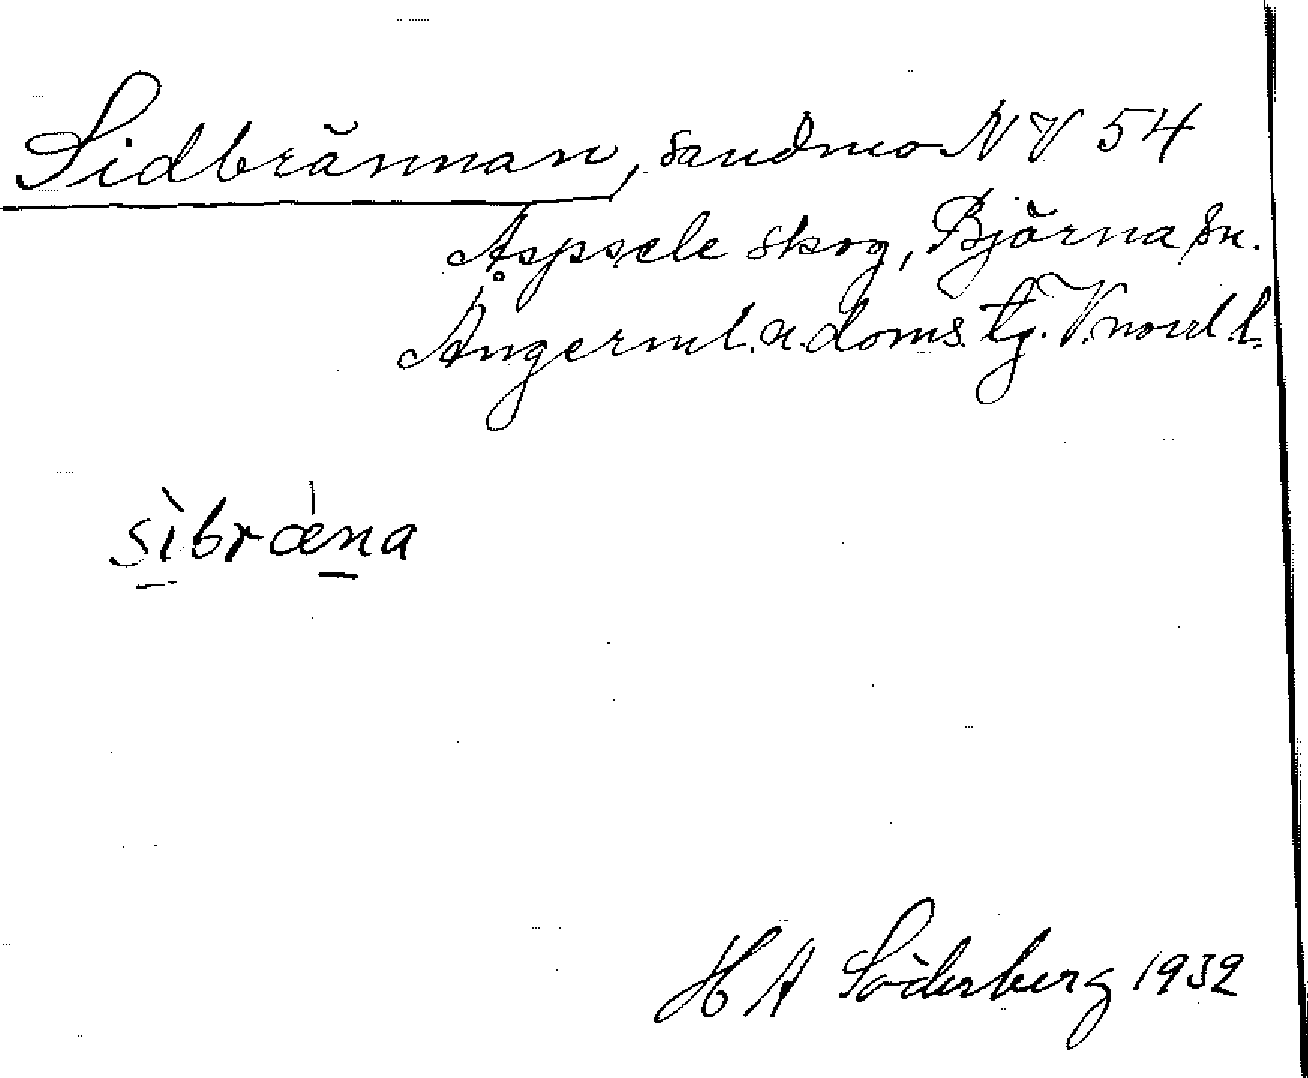 Sidbrännan, sandmo NV 54
Aspsele skog, Björna sn.
Ångerml. n. doms. tg. V.norrl l.
sìbræ̀na
H A Söderberg 1932